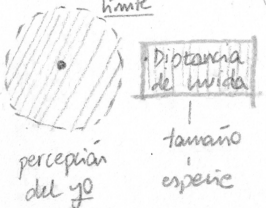 límite
Distancia
de huida
tamaño
especie
percepción
del yo